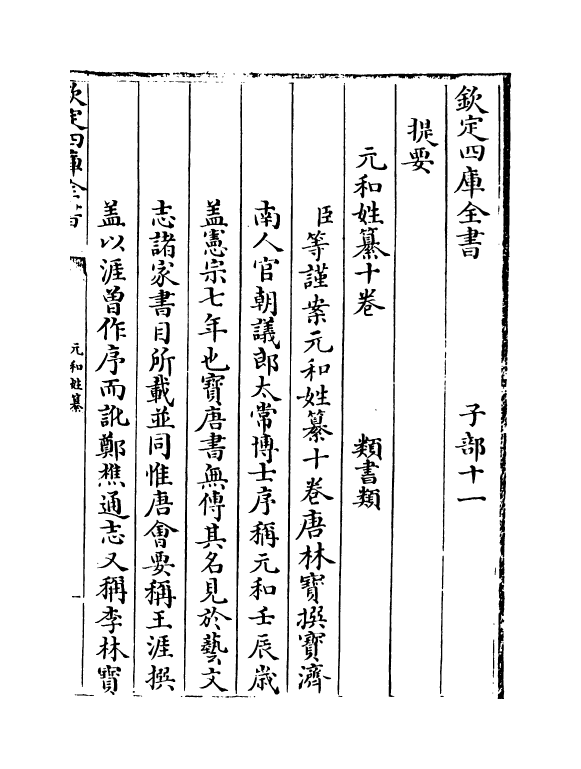 欽定四庫全書　子部十一
提要
元和姓纂十卷　類書類
臣等謹案元和姓纂十卷唐林寶撰寶濟
南人官朝議郎太常博士序稱元和壬辰歳
盖憲宗七年也寶唐書無傳其名見於藝文
志諸家書目所載並同惟唐會要稱王涯撰
盖以涯曽作序而訛鄭樵通志又稱李林寶
欽定四庫全書
元和姓纂
一